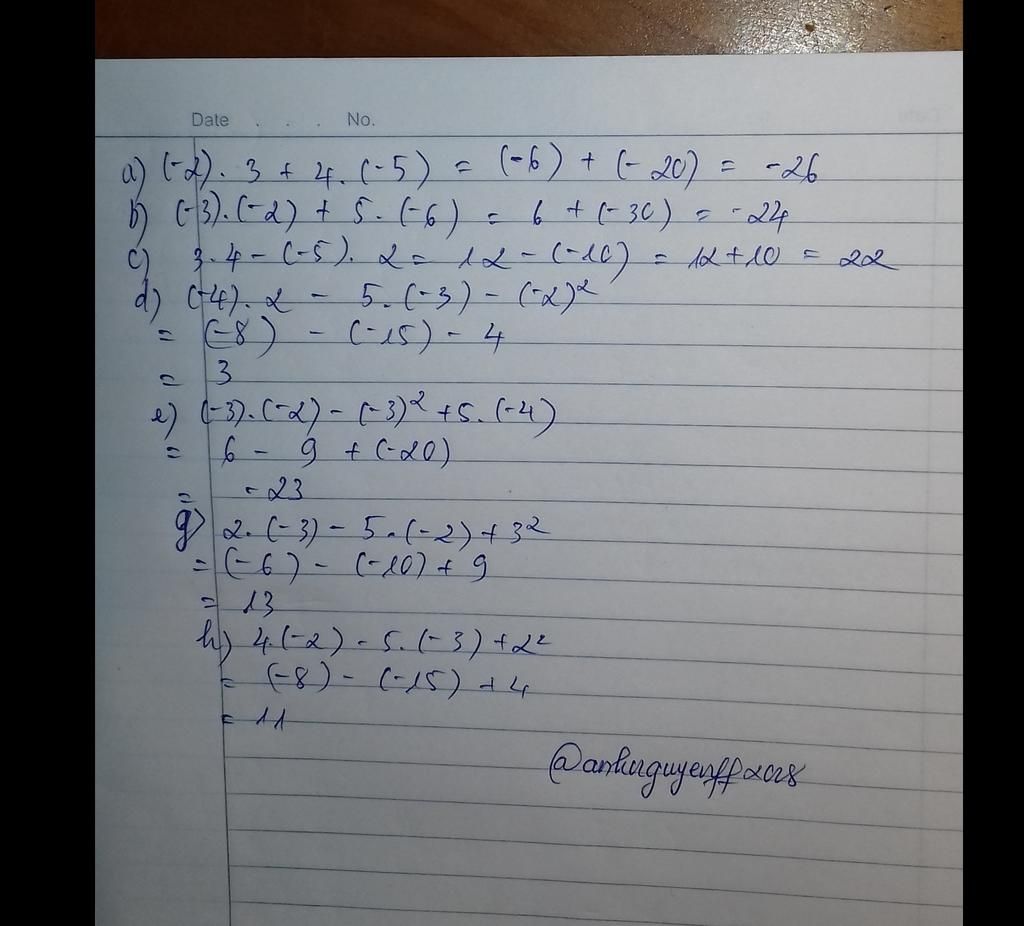 Date . . . No.
a) (-2). 3 + 4. (-5) = (-6) + (- 20) = -26
b) (-3).(-2) + 5. (-6) = 6 + (-30) = -24
c) 3.4 - (-5). 2 = 12 - (-10) = 12+10 = 22
d) (-4). 2 - 5. (-3) - (-2)²
= (-8) - (-15) - 4
= 3
e) (-3).(-2) - (-3)² +5. (-4)
= 6 - 9 + (-20)
= -23
g) 2. (-3) - 5.(-2) + 3²
= (-6) - (-10) + 9
= 13
h) 4.(-2) - 5.(-3) +2²
= (-8) - (-15) +4
= 11